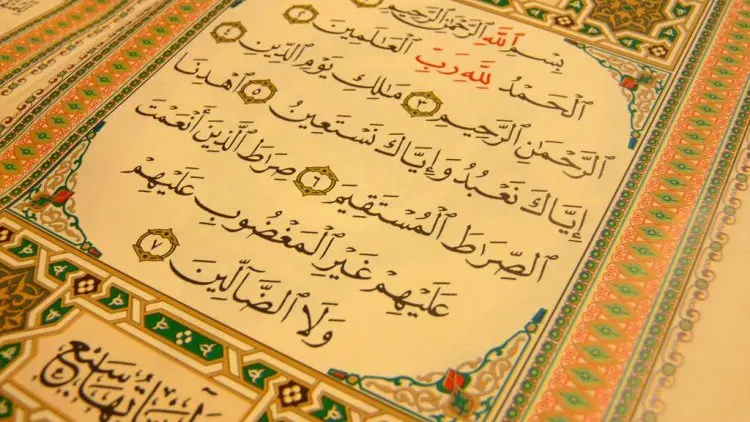 بِسْمِ ٱللَّهِ ٱلرَّحْمَٰنِ ٱلرَّحِيمِ
ٱلْحَمْدُ لِلَّهِ رَبِّ ٱلْعَالَمِينَ ٢
ٱلرَّحْمَٰنِ ٱلرَّحِيمِ ٣ مَالِكِ يَوْمِ ٱلدِّينِ ٤
إِيَّاكَ نَعْبُدُ وَإِيَّاكَ نَسْتَعِينُ ٥ ٱهْدِنَا
ٱلصِّرَاطَ ٱلْمُسْتَقِيمَ ٦ صِرَاطَ ٱلَّذِينَ أَنْعَمْتَ
عَلَيْهِمْ غَيْرِ ٱلْمَغْضُوبِ عَلَيْهِمْ
وَلَا ٱلضَّآلِّينَ ٧